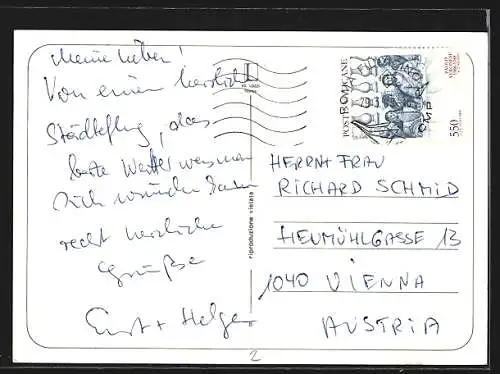 Meine Lieben!
Von einem herrlich
Städteflug, das
beste Wetter was man
sich wünschen kann
recht herzliche
Grüße
Ernst + Helga
riproduzione vietata
POSTE VATICANE
550
HERRN+FRAU
RICHARD SCHMID
HEUMÜHLGASSE 13
1040 VIENNA
AUSTRIA
2